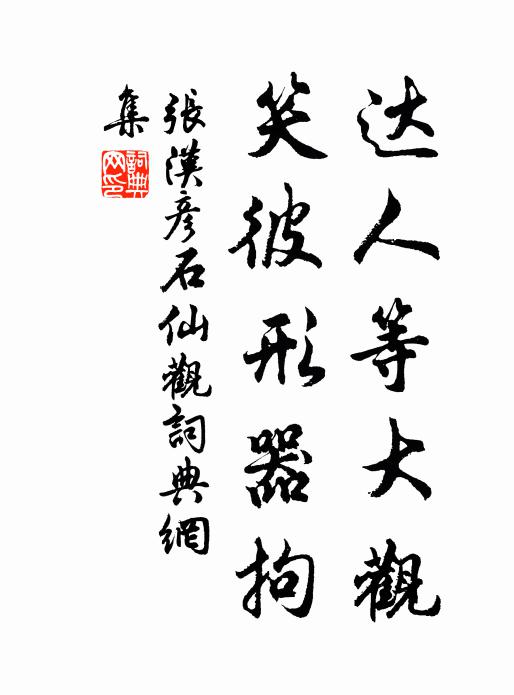 达人等大觀
笑彼形器拘
張漢彦石仙觀詞典網
集
詞典网印